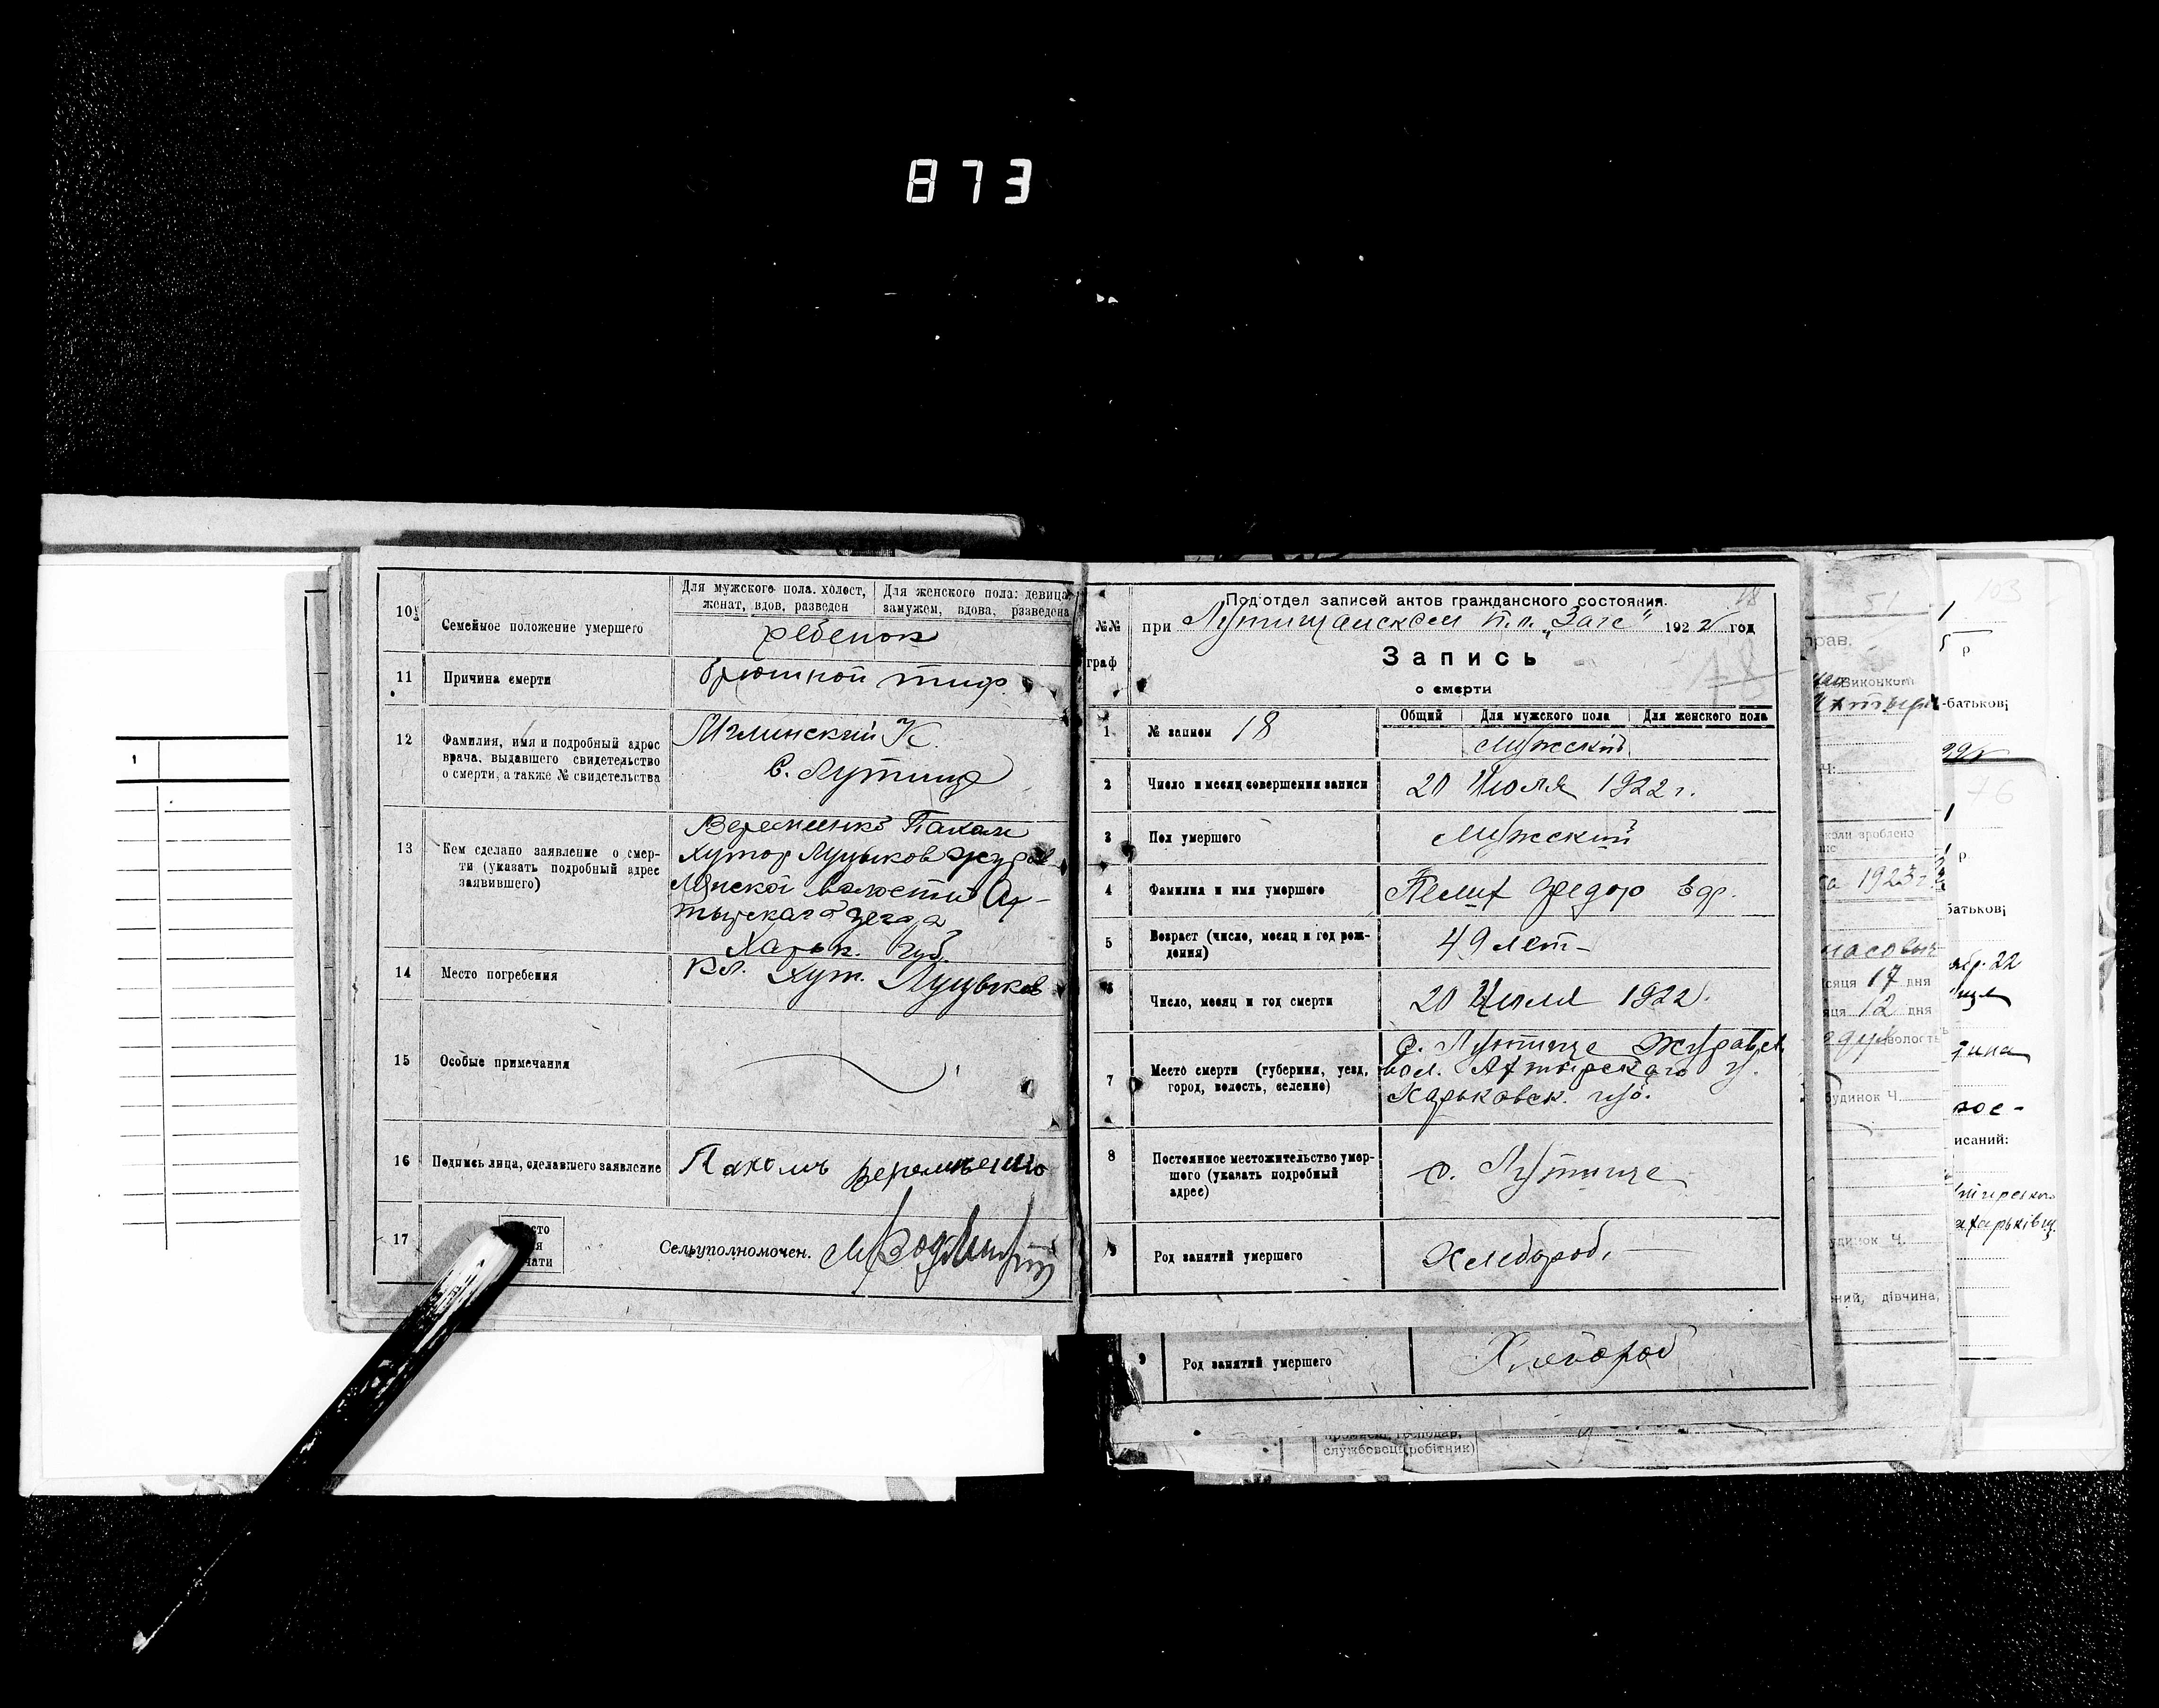 873
10
Семейное положение умершего
Для мужского пола. холост, женат, вдов, разведен
Для женского пола: девица, замужем, вдова, разведена
ребенок
11
Причина смерти
брюшной тиф.
12
Фамилия, имя и подробный адрес
врача, выдавшего свидетельство
о смерти, а также № свидетельства
Мглинский К.
С. Лутища
13
Кем сделано заявление о смер-
ти (указать подробный адрес
заявившего)
Веремеенко Пахом
Хутор Луцыков Журав
лянской волости Ах-
тырского уезда
Харьк. губ.
14
Место погребения
кл. Хут. Луцыков
15
Особые примечания
16
Подпись лица, сделавшего заявление
Пахомъ
17
Сельуполномочен.
Под'отдел записей актов гражданского состояния.
18
№№
граф
при Лутищанском п.п. „Загс" 1922 год
Запись
18
о смерти
1
№ записи 18
Общий
Для мужского пола
Для женского пола
Мужский
2
Число и месяц совершения записи
20 Июля 1922 г.
3
Пол умершего
Мужский
4
Фамилия и имя умершего
Федор Еф.
5
Возраст (число, месяц и год рож-
дения)
49 лет
6
Число, месяц и год смерти
20 Июля 1922.
7
Место смерти (губерния, уезд,
город, волость, селение)
с. Лутище Журавл.
вол. Ахтырского у.
Харьковск. губ.
8
Постоянное местожительство умер-
шего (указать подробный
адрес)
с. Лутище
9
Род занятий умершего
Хлебороб.
9
Род занятий умершего
Хлебороб
службовец, робітник)
51
прав.
Виконком
1923 г.
месяця 17 дня
12 дня
волость
будинок Ч.
будинок Ч.
дівчина,
103
р
батькові
76
р
батькові
22
исаний:
1